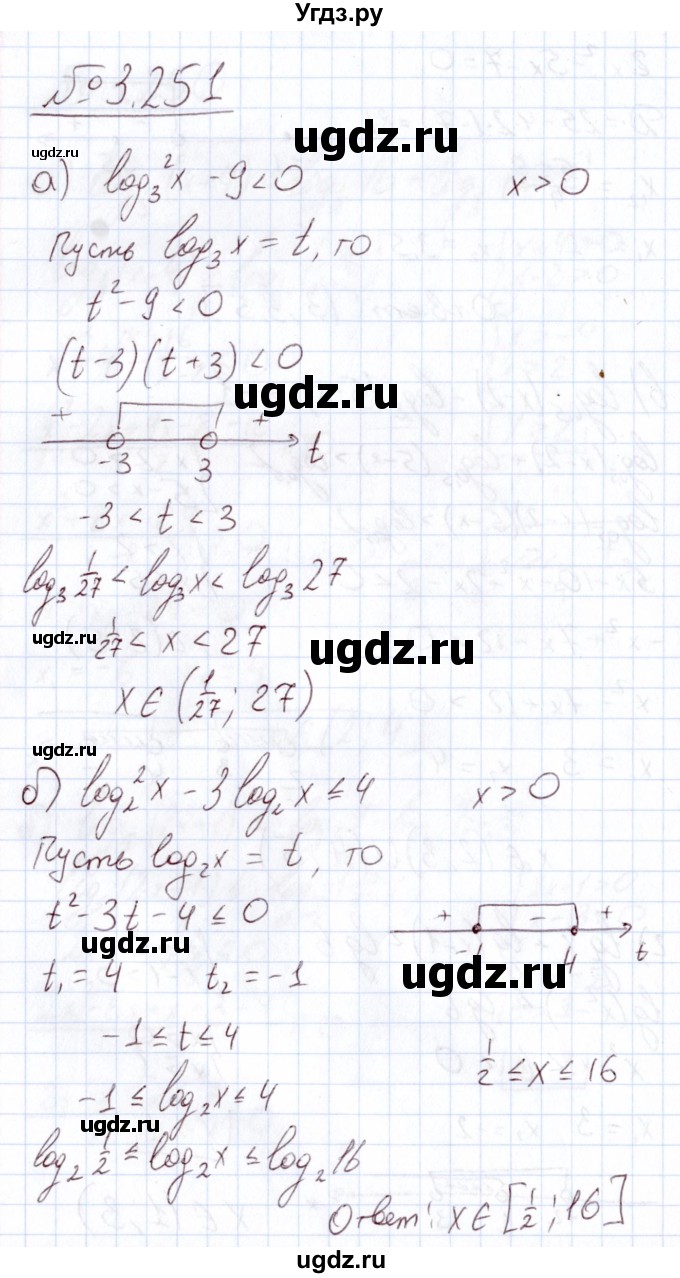 Угдз.ру
№ 3.251
ugdz.ru
ugdz.ru
а) log₃²x - 9 < 0 x > 0
Пусть log₃x = t, то
t² - 9 < 0
(t - 3)(t + 3) < 0
ugdz.ru
+ - +
-3 3 t
-3 < t < 3
log₃ 1/27 < log₃x < log₃27
ugdz.ru 1/27 < x < 27
ugdz.ru
x ∈ (1/27; 27)
ugdz.ru
б) log₂²x - 3log₂x ≤ 4 x > 0
Пусть log₂x = t, то
t² - 3t - 4 ≤ 0
+ - +
-1 4 t
ugdz.ru
ugdz.ru
t₁ = 4 t₂ = -1
-1 ≤ t ≤ 4
1/2 ≤ x ≤ 16
-1 ≤ log₂x ≤ 4
ugdz.ru
log₂ 1/2 ≤ log₂x ≤ log₂16
Ответ: x ∈ [1/2; 16]
ugdz.ru